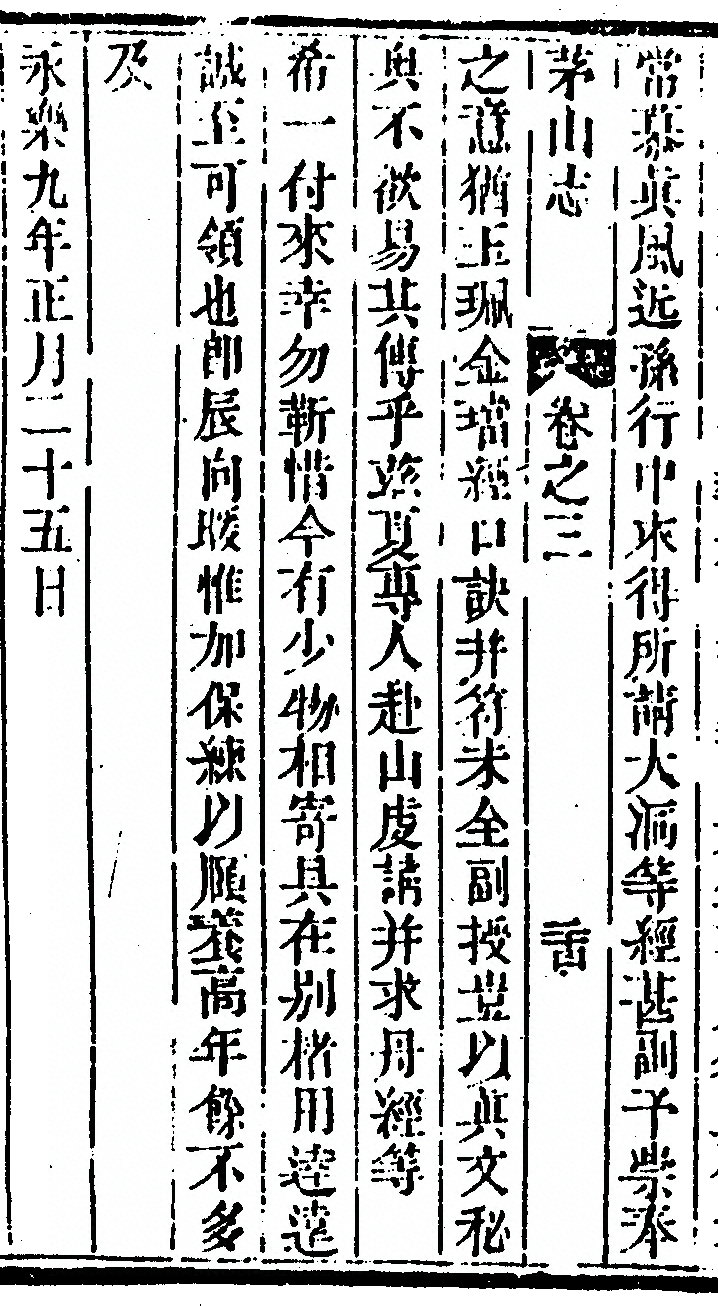 常慕眞風近孫行中來得所請大洞等經甚副予崇奉
茅山志 卷之三
之意猶玉珮金璫經口訣并符未全副授豈以眞文秘
奧不欲易其傳乎茲夏專人赴山虔請并求丹經等
希一付來幸勿靳惜今有少物相寄具在別楮用達遠
誠至可領也即辰向暖惟加保練以順養高年餘不多
及
永樂九年正月二十五日